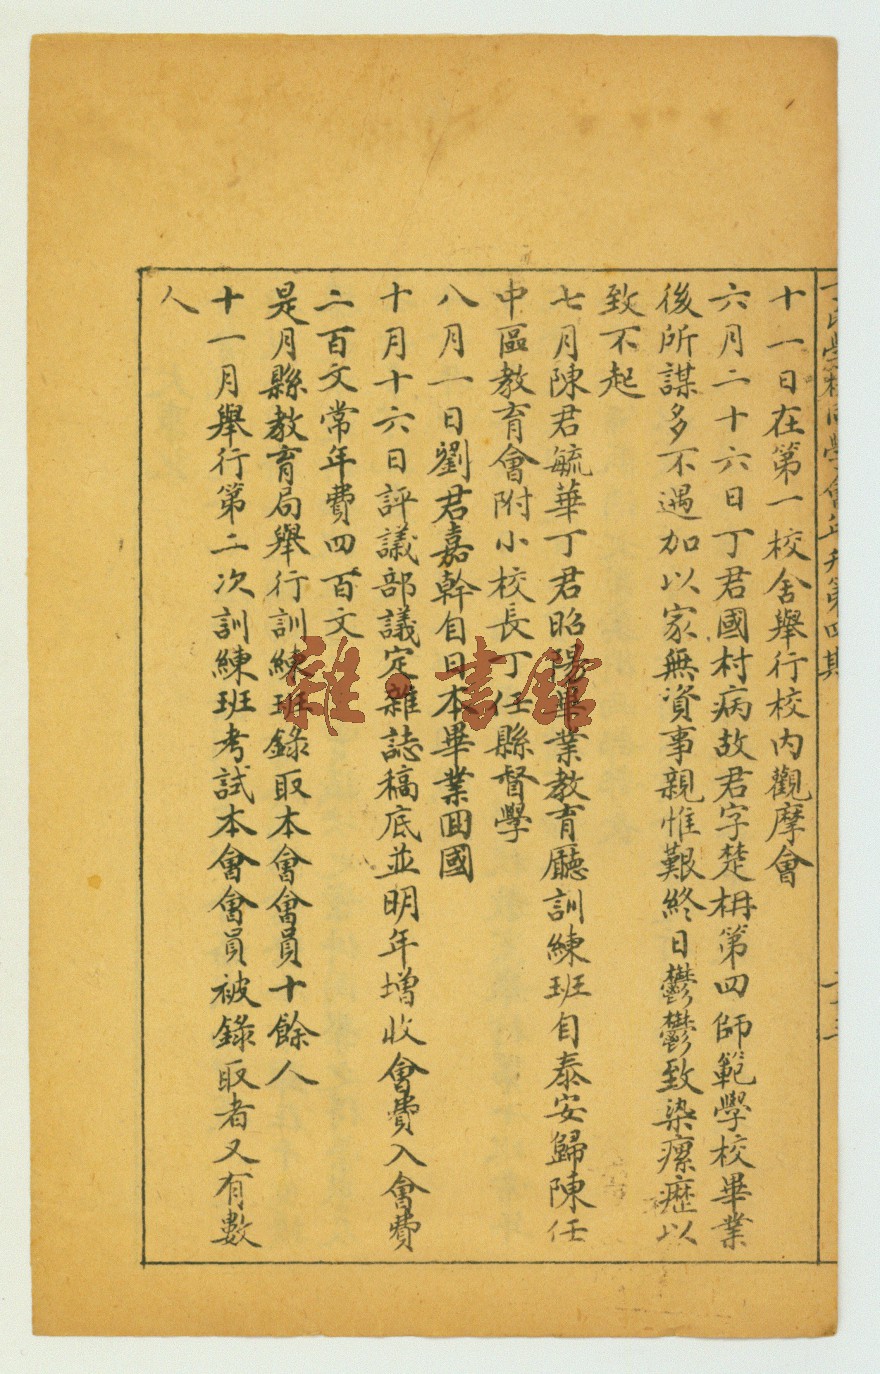 學校同學會年刊第四期
十一日在第一校舍舉行校內觀摩會
六月二十六日丁君國村病故君字楚枏第四師範學校畢業
後所謀多不遇加以家無資事親惟艱終日鬱鬱致染瘰癧以
致不起
七月陳君毓華丁君昭陽畢業教育廳訓練班自泰安歸陳任
中區教育會附小校長丁任縣督學
八月一日劉君嘉幹自日本畢業囬國
十月十六日評議部議定雜誌稿底並明年增收會費入會費
二百文常年費四百文
是月縣教育局舉行訓練班錄取本會會員十餘人
十一月舉行第二次訓練班考試本會會員被錄取者又有數
人
雜·書館